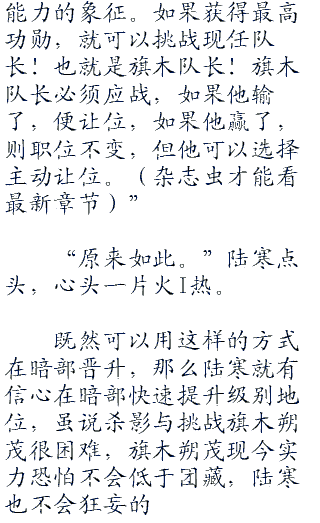 能力的象征。如果获得最高
功勋，就可以挑战现任队
长！也就是旗木队长！旗木
队长必须应战，如果他输
了，便让位，如果他赢了，
则职位不变，但他可以选择
主动让位。（杂志虫才能看
最新章节）”
“原来如此。”陆寒点
头，心头一片火I热。
既然可以用这样的方式
在暗部晋升，那么陆寒就有
信心在暗部快速提升级别地
位，虽说杀影与挑战旗木朔
茂很困难，旗木朔茂现今实
力恐怕不会低于团藏，陆寒
也不会狂妄的